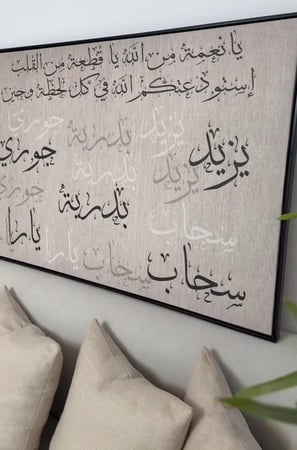 يا نعمة من الله يا قطعة من القلب
إستودعتكم الله في كل لحظة وحين
يزيد بدرية جوري
يزيد بدرية جوري
يزيد بدرية جوري
سحاب يارا
سحاب سحاب يارا